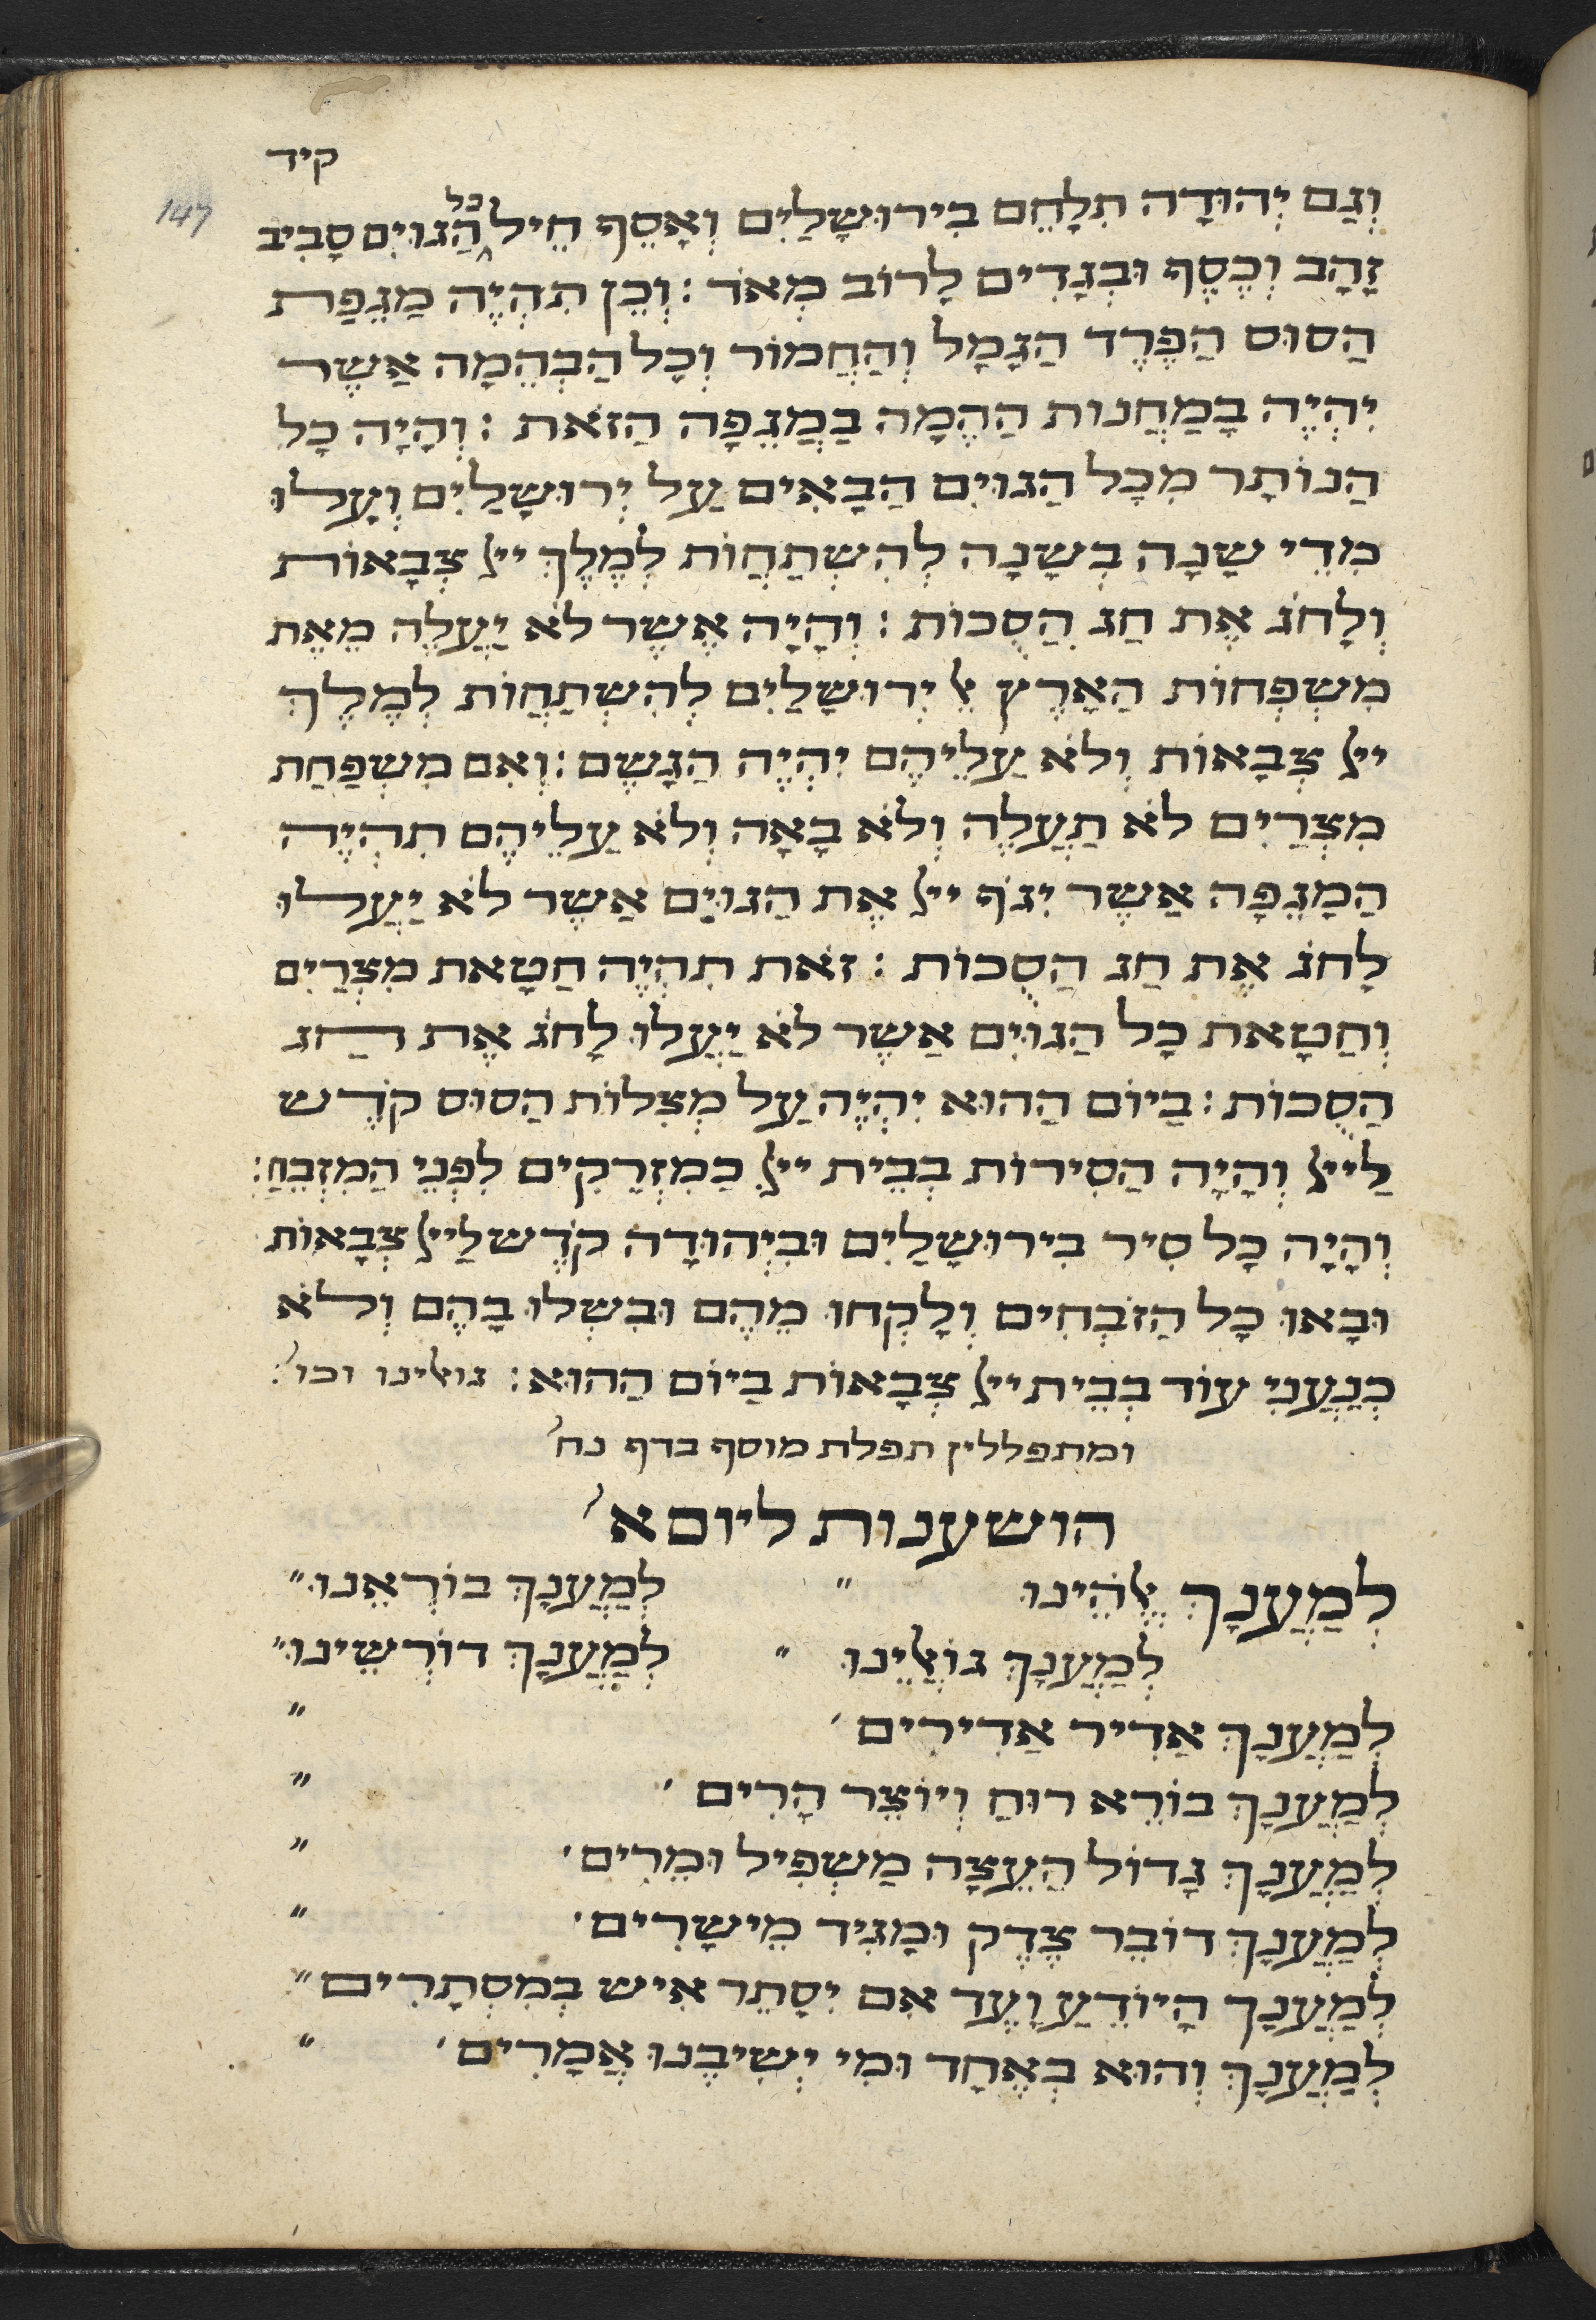 קיד
147
וְגַם יְהוּדָה תִלָחֵם בִירוּשָלַיִם וְאָסֵף חֵיל כל הַגוּיִם סָבִיב
זָהָב וְכֶסֶף וּבְגָדִים לָרוֹב מְאֹד : וְכֵן תִהְיֶה מַגֵפַת
הַסוּס הַפֶרֶד הַגָמָל וְהַחֲמוֹר וְכָל הַבְהֵמָה אַשֶר
יִהְיֶה בָמַחֲנוֹת הַהֶמָה בַמֲגֵפָה הַזֹאת : וְהָיָה כָל
הַנוֹתָר מִכָל הַגוּיִם הַבָאִים עַל יְרוּשָלַיִם וְעָלוּ
מִדֵי שָנָה בְשָנָה לְהִשְתַחֲוֹת לְמֶלֶךְ ייָ צְבָאוֹת
וְלָחֹג אֶת חַג הַסֻכוֹת : וְהָיָה אֶשֶר לֹא יַעֲלֶה מֵאֶת
מִשְפְחוֹת הַאָרֶץ אֵ יְרוּשָלַיִם לְהִשְתַחֲוֹת לְמֶלֶךְ
ייָ צְבָאוֹת וְלֹא עַלֵיהֶם יִהְיֶה הַגָשֶם : וְאִם מִשְפַחַת
מִצְרַיִם לֹא תַעֲלֶה וְלֹא בָאָה וְלֹא עַלֵיהֶם תִהְיֶה
הַמָגֵפָה אַשֶר יִגֹף ייָ אֶת הַגוּיִם אַשֶר לֹא יַעֲלוּ
לָחֹג אֶת חַג הַסֻכוֹת : זֹאת תִהְיֶה חַטָאת מִצְרַיִם
וְחַטָאת כָל הַגוֹיִם אַשֶר לֹא יַעֲלוּ לָחֹג אֶת חַג
הַסֻכוֹת : בַיוֹם הַהוּא יִהְיֶה עַל מְצִלוֹת הַסוּס קֹדֶש
לַייָ וְהָיָה הַסִירוֹת בְבֵית ייָ כַמִזְרָקִים לִפְנֵי הַמִזְבֵחַ :
וְהָיָה כָל סִיר בִירוּשָלַיִם וּבִיְהוּדָה קֹדֶש לַייָ צְבָאוֹת
וּבָאוּ כָל הַזֹבְחִים וְלָקְחוּ מֵהֶם וּבִשְלוּ בָהֶם וְלֹא
כְנַעֲנִי עוֹד בְבֵית ייָ צְבָאוֹת בַיוֹם הַהוּא : גואלינו וכו׳ :
ומתפללין תפלת מוסף בדף נח׳
הושענות ליום א׳
לְמַעֲנָךְ אֱלֹהֵינוּ ״ לְמַעֲנָךְ בוֹרְאֵנוּ ״
לְמַעֲנָךְ גוֹאֲלֵינוּ ״ לְמַעֲנָךְ דוֹרְשֵינוּ ״
לְמַעֲנָךְ אַדִיר אַדִירִים ׳ ״
לְמַעֲנָךְ בוֹרֵא רוּחַ וְיוֹצֵר הָרִים ׳ ״
לְמַעֲנָךְ גָדוֹל הַעֵצָה מַשְפִיל וּמֵרִים ׳ ״
לְמַעֲנָךְ דוֹבֵר צֶדֶק וּמַגִיד מֵישָרִים ׳ ״
לְמַעֲנָךְ הַיוֹדֵעַ וָעֵד אִם יִסָתֵר אִיש בְמִסְתָרִים ״
לְמַעֲנָךְ וְהוּא בְאֶחָד וּמִי יְשִיבֶנוּ אֲמָרִים ׳ ״